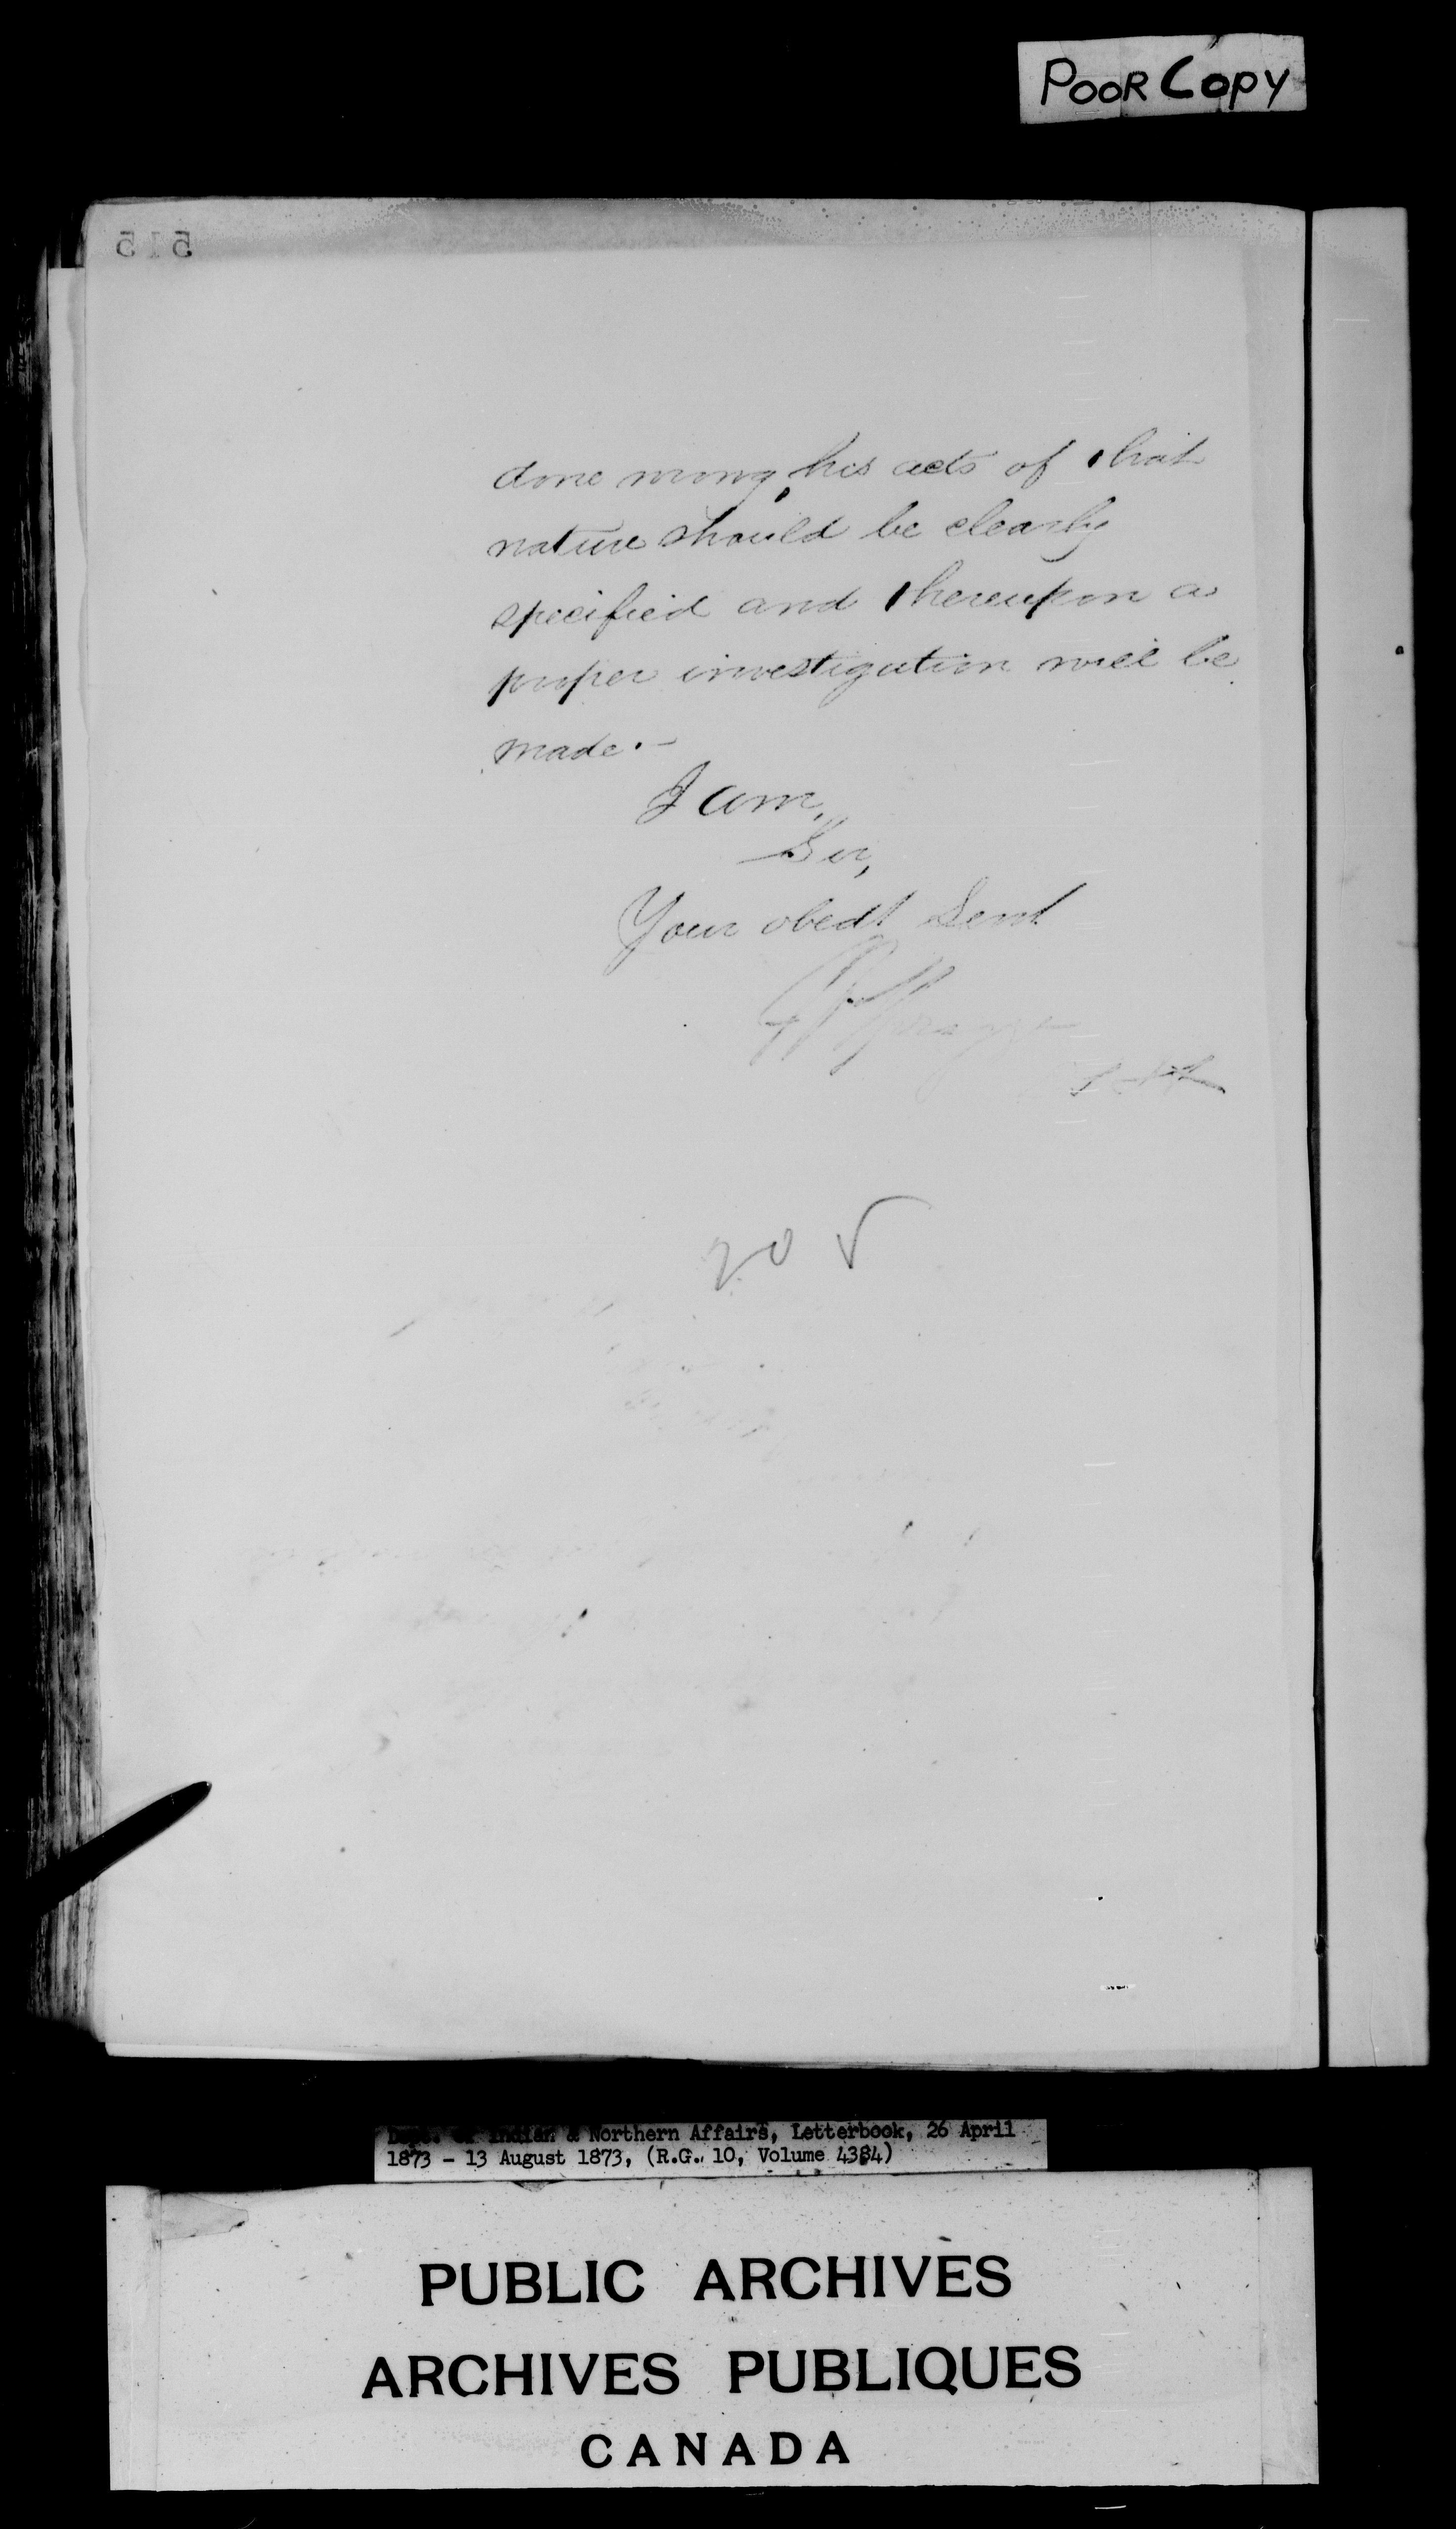 POOR COPY
515
done wrong, his acts of that
nature should be clearly
specified and thereupon a
proper investigation will be
made.-
I am,
Sir,
Your obedt Servt
Spragge
20
Dept. of Indian & Northern Affairs, Letterbook, 26 April
1873 - 13 August 1873, (R.G. 10, Volume 4384)
PUBLIC ARCHIVES
ARCHIVES PUBLIQUES
CANADA